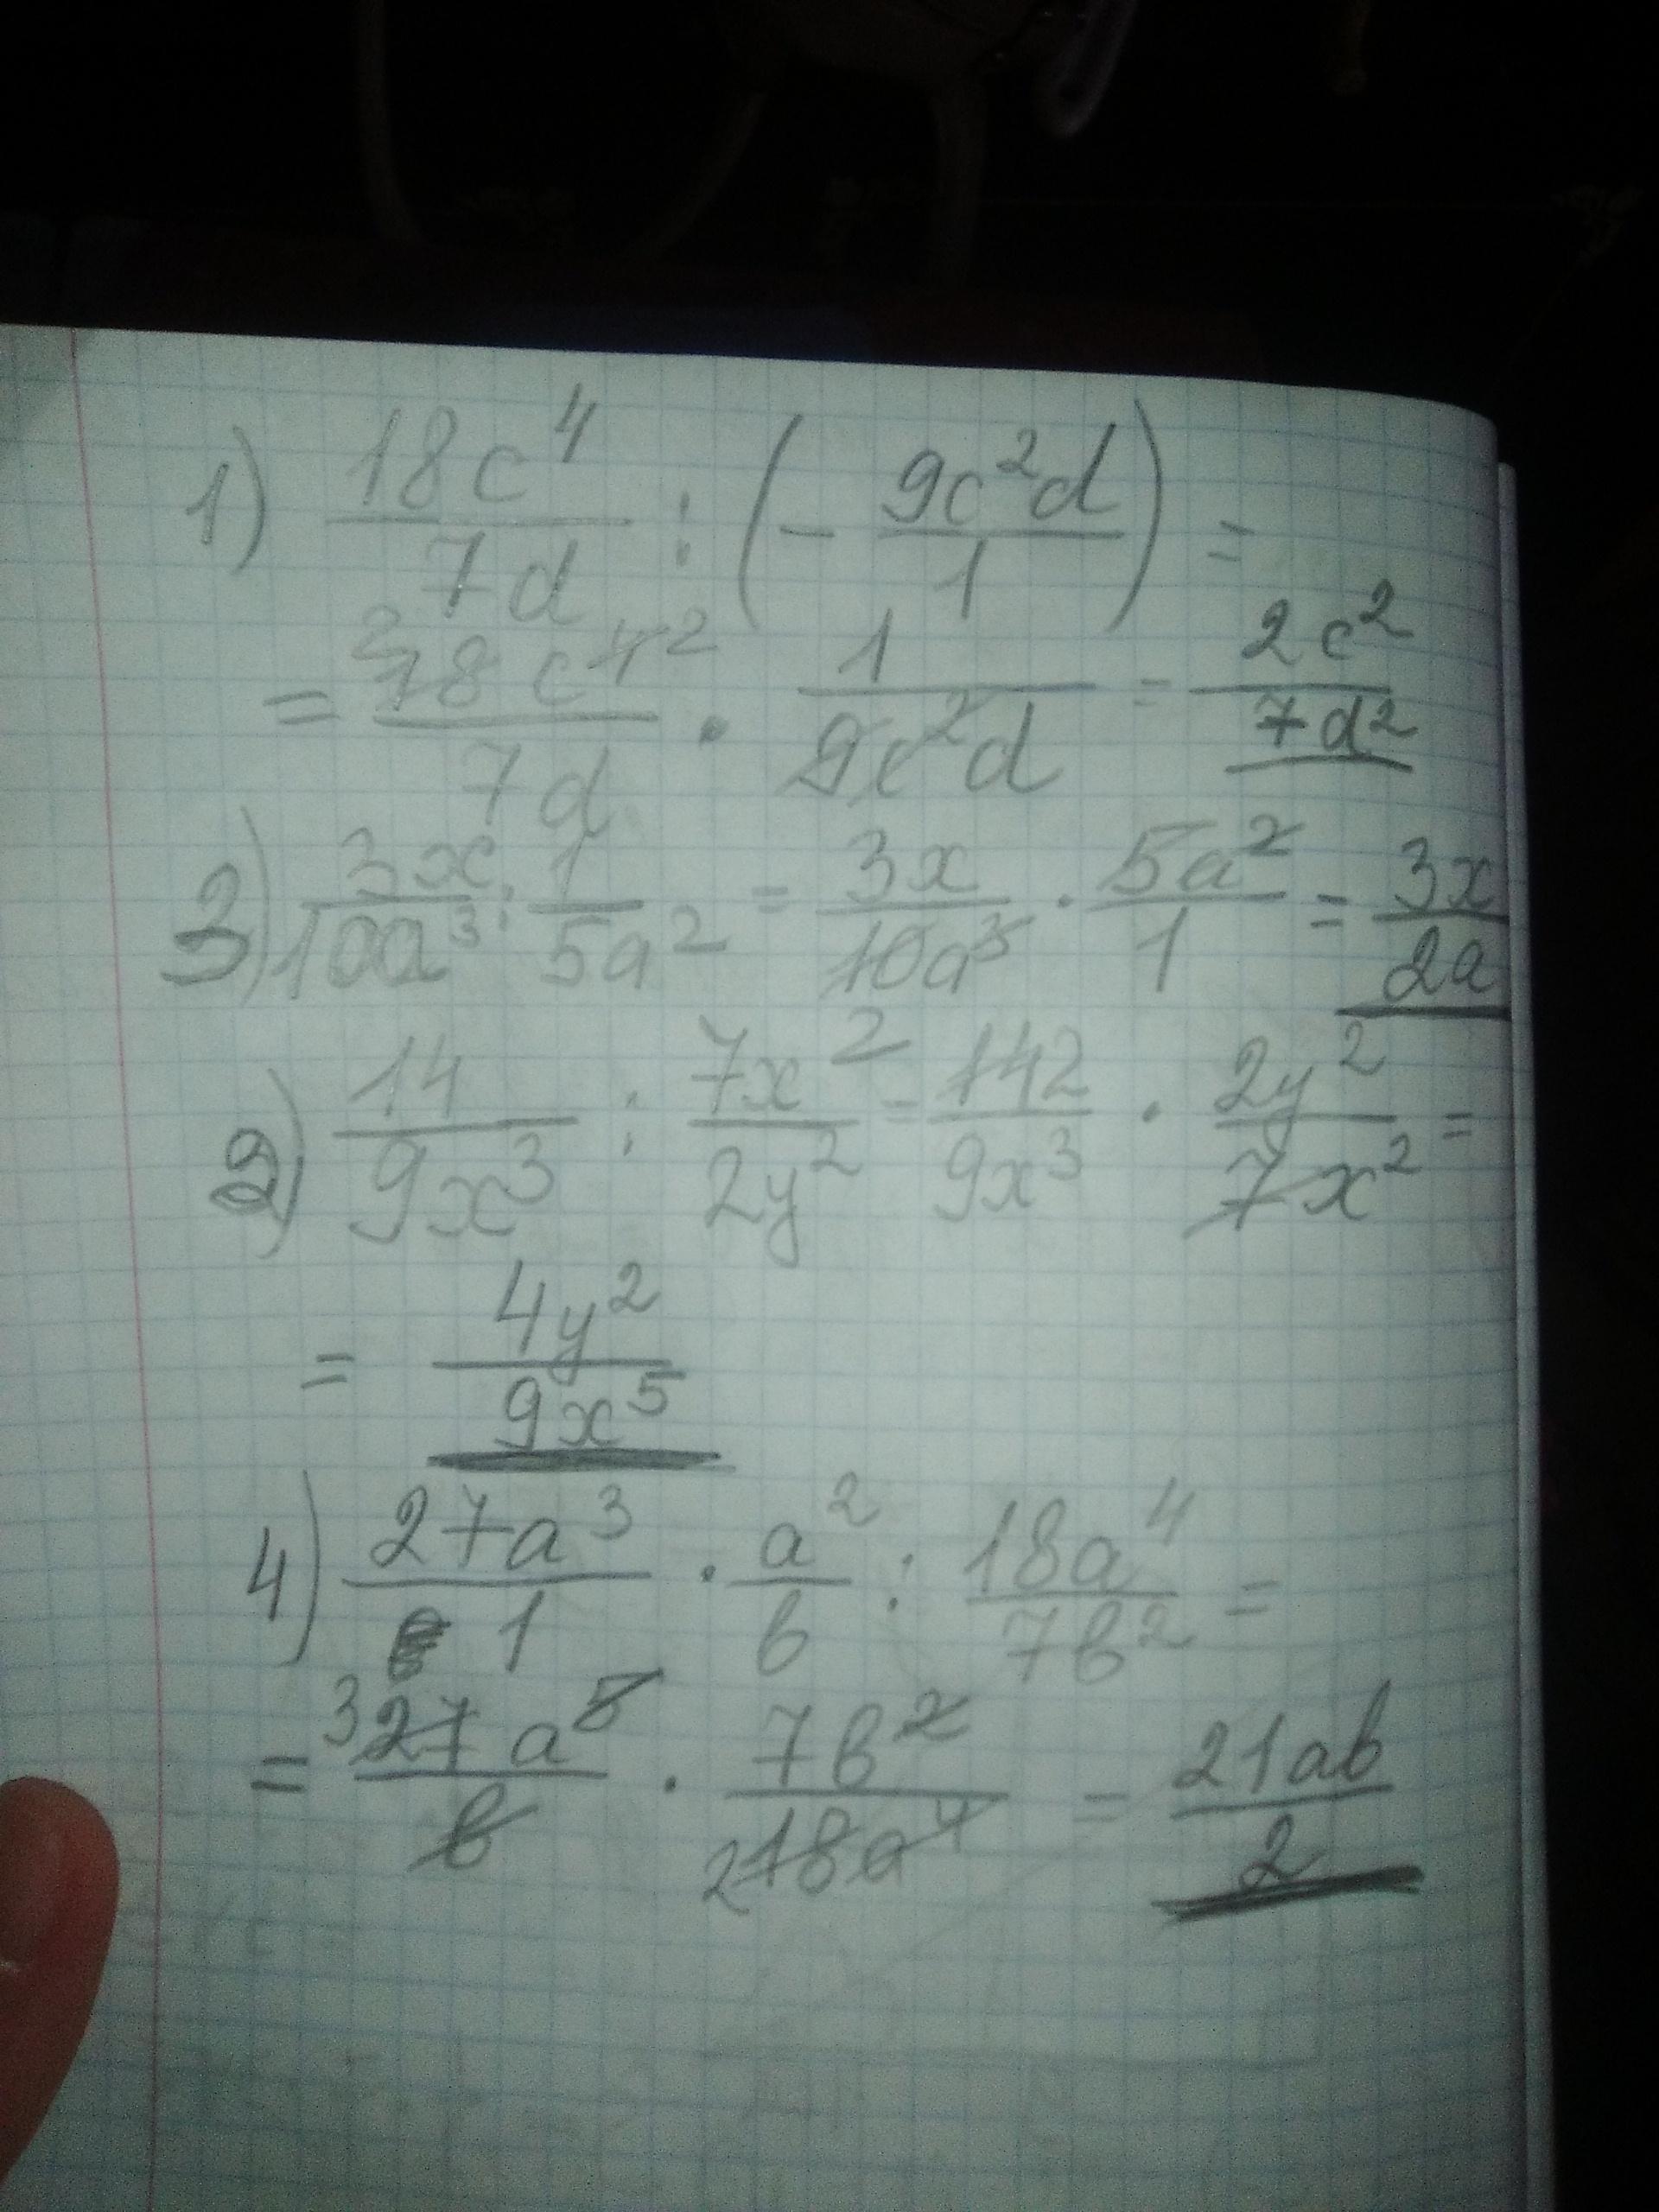 1) 18c⁴/7d : (- 9c²d/1) =
= 18c⁴/7d · 1/9c²d = 2c²/7d²
3) 3x/10a³ : 1/5a² = 3x/10a³ · 5a²/1 = 3x/2a
2) 14/9x³ : 7x²/2y² = 14 2/9x³ · 2y²/7x² =
= 4y²/9x⁵
4) 27a³/1 · a²/b : 18a⁴/7b² =
= 3 27a⁵/b · 7b²/2 18a⁴ = 21ab/2